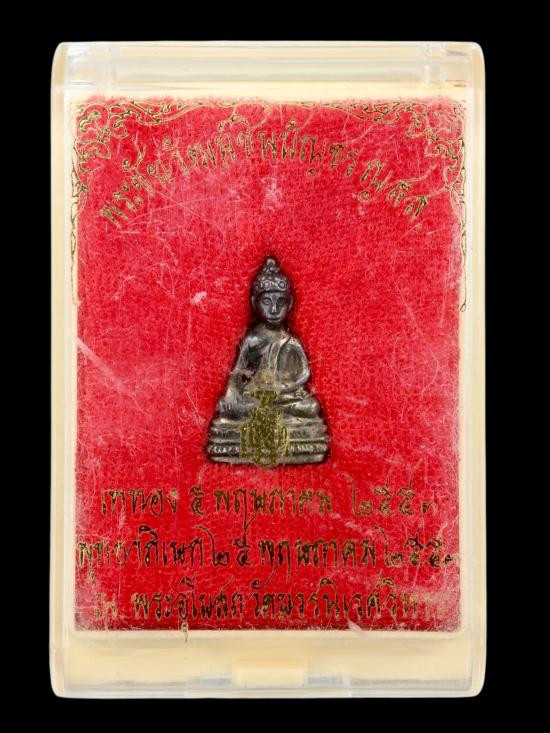 พระชัยวัฒน์ชินบัญชร ญสส
เททอง ๕ พฤษภาคม ๒๕๕๓
พุทธาภิเษก ๒๕ พฤษภาคม ๒๕๕๓
ณ พระอุโบสถวัดบวรนิเวศวิหาร